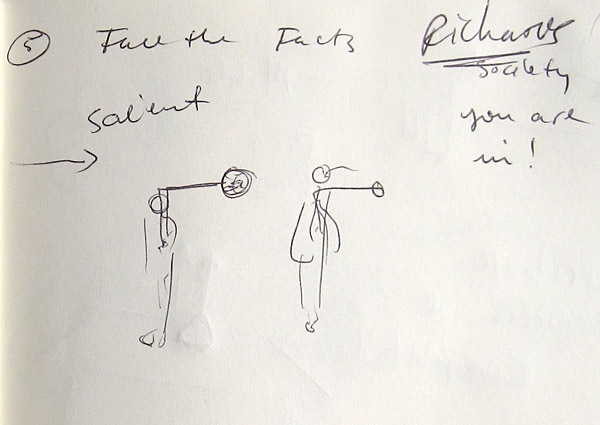 5 Face the Facts
Richard's
Society
you are
in!
salient